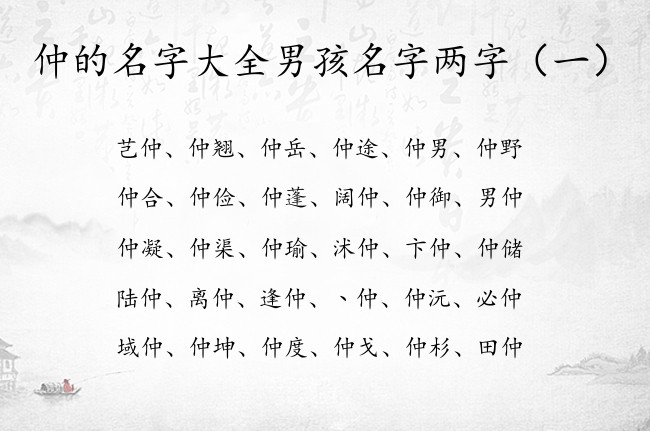 仲的名字大全男孩名字两字（一）
芑仲、仲翘、仲岳、仲途、仲男、仲野
仲合、仲俭、仲蓬、阔仲、仲御、男仲
仲凝、仲渠、仲瑜、沭仲、卞仲、仲储
陆仲、离仲、逢仲、丶仲、仲沅、必仲
域仲、仲坤、仲度、仲戈、仲杉、田仲